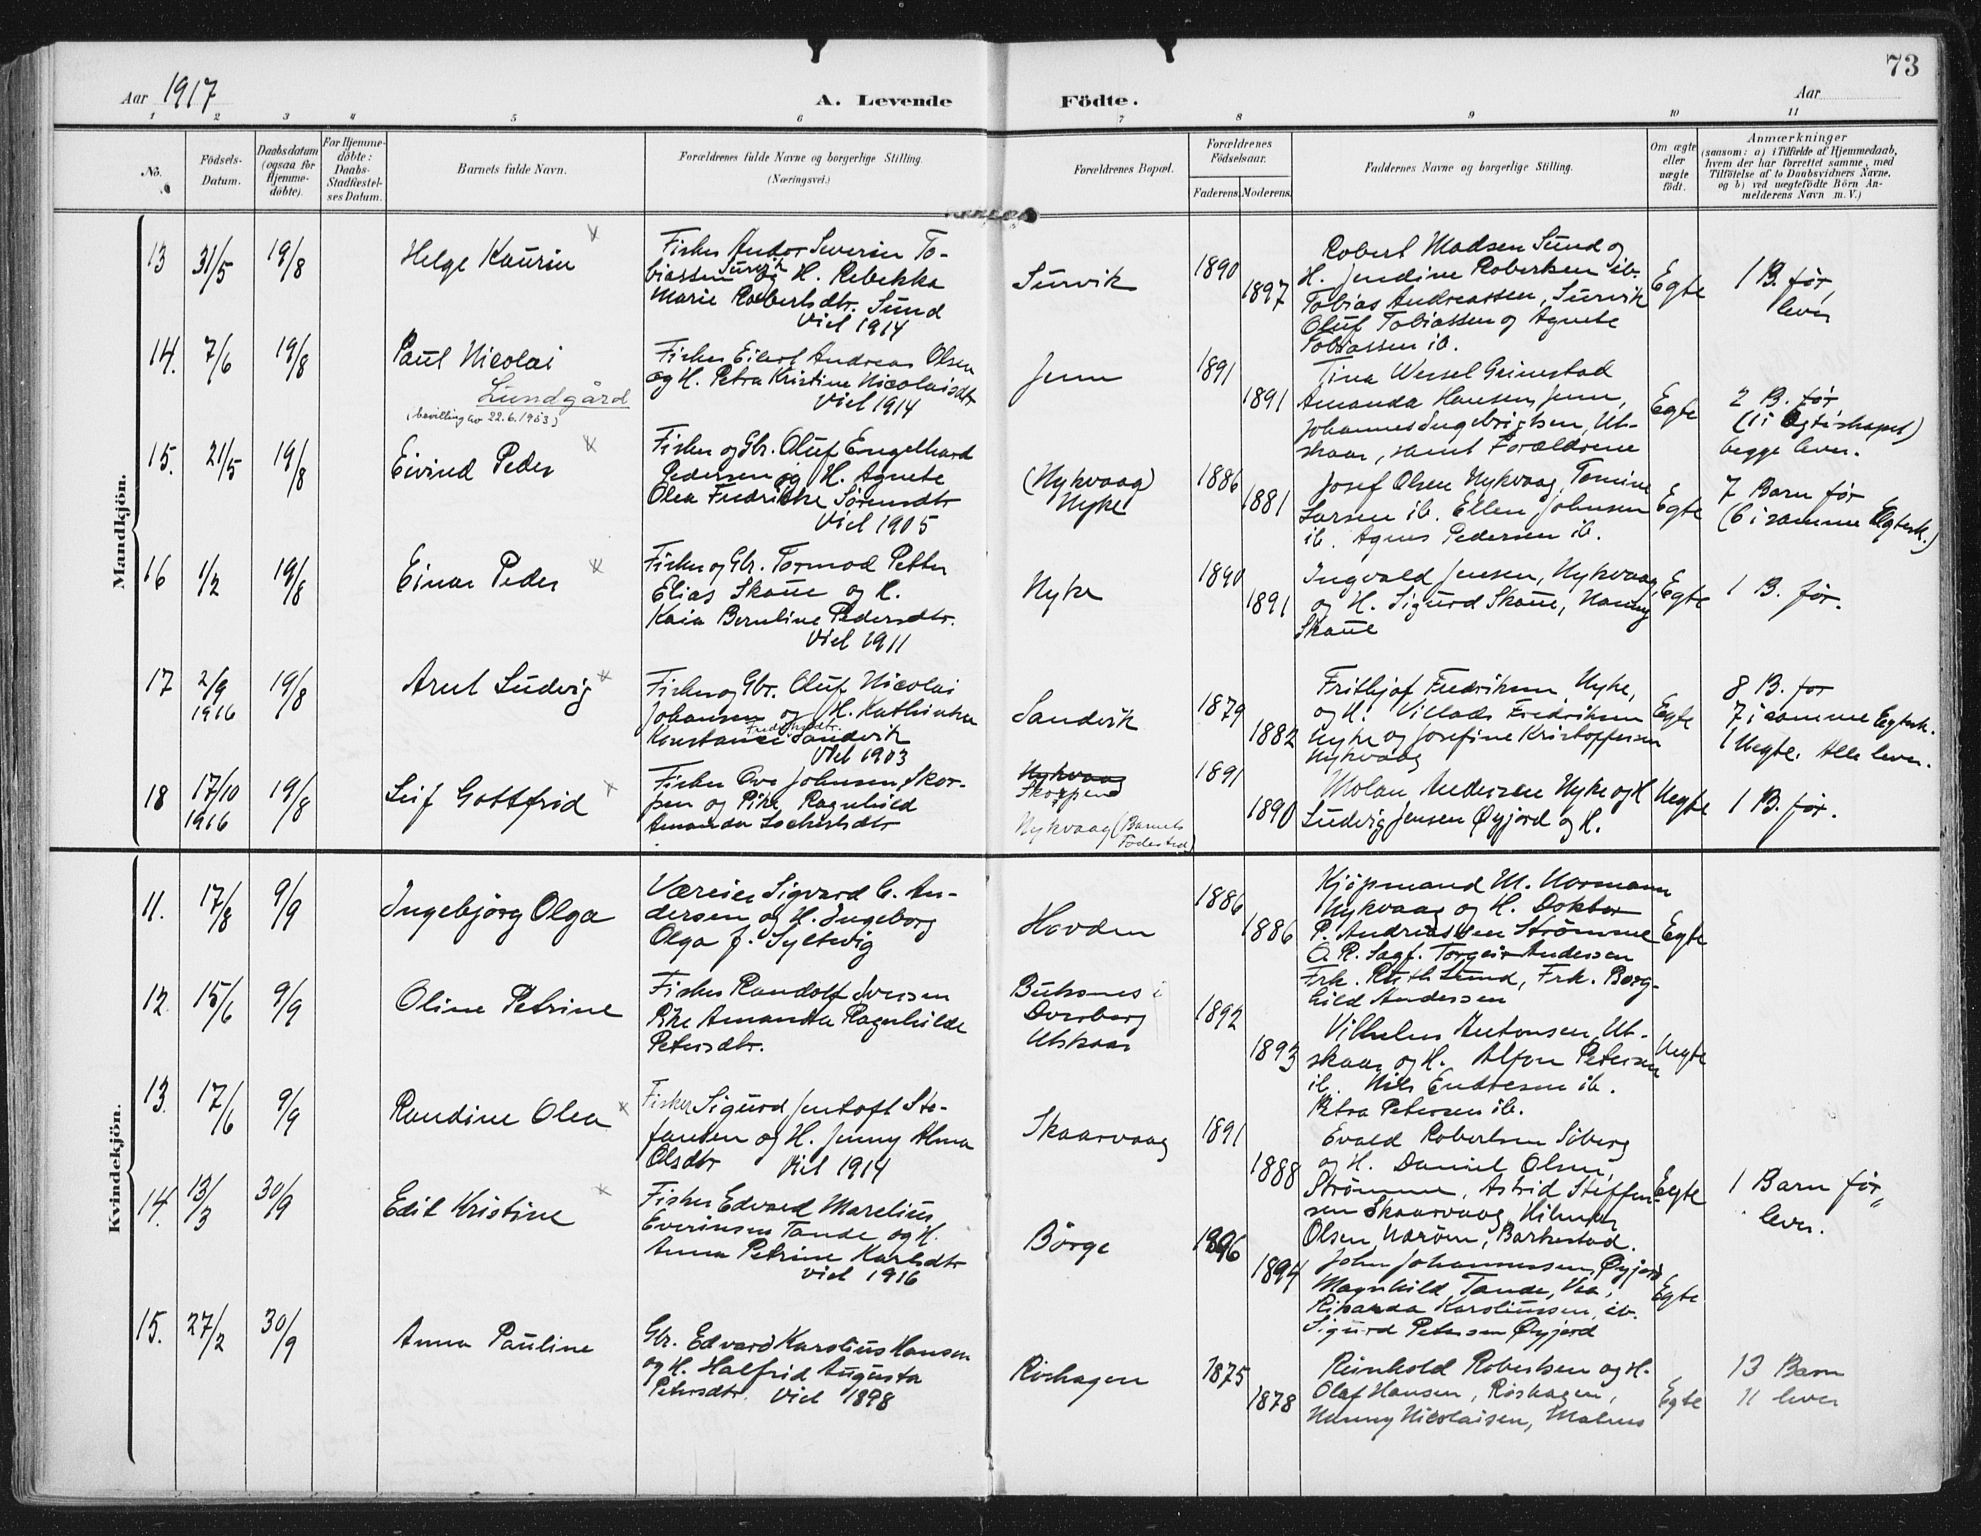 73
Aar 1917
A. Levende Födte.
Aar
1 2 3 4 5 6 7 8 9 10 11
No.
Födsels-
Datum.
Daabsdatum
(ogsaa for
Hjemme-
döbte).
For Hjemme-
döbte:
Daabs-
Stadfæstel-
ses Datum.
Barnets fulde Navn.
Forældrenes fulde Navne og borgerlige Stilling.
(Næringsvei.)
Forældrenes Bopæl.
Forældrenes
Födselsaar.
Faderens. Moderens.
Faddernes Navne og borgerlige Stilling.
Om ægte
eller
uægte
födt.
Anmærkninger
(saasom: a) i Tilfælde af Hjemmedaab,
hvem der har forrettet samme, med
Tilföielse af to Daabsvidners Navne,
og b) ved uægtefödte Börn An-
melderens Navn m. V.)
Mandkjön.
13 31/5 19/8
Helge Kaurin
Fisker Andor Severin To-
biassen Survik og H. Rebekka
Marie Robertsdtr. Sund
Viel 1914
Survik
1890
1897
Robert Madsen Sund og
H. Jendine Robertsen ib.
Tobias Andreassen, Survik
Oluf Tobiassen og Agnete
Tobiassen ib.
Egte
1 B. før,
lever
14. 7/6 19/8
Paul Nicolai
Lundgård
(bevilling av 22.6.1953)
Fisker Eilert Andreas Olsen
og H. Petra Kristine Nicolaisdtr
Viel 1914
Jenn
1891
1891
Tina Wessel Grimestad
Amanda Hansen, Jenn,
Johannes Ingebrigtsen, Ut-
skaar, samt Forældrene
Egte
2 B. før
(1 i Egteskapet)
begge lever.
15. 21/5 19/8
Eivind Peder
Fisker og Gbr. Oluf Engelhard
Pedersen og H. Agnete
Olea Fredrikke Sørensdtr
Viel 1905
(Nykvaag)
Nyke
1886
1881
Josef Olsen Nykvaag, Tomine
Larsen ib. Ellen Johnsen
ib. Agnes Pedersen ib.
Egte
7 Barn før
(6 i samme Egtesk.)
16 1/2 19/8
Einar Peder
Fisker og Gbr. Tormod Petter
Elias Skaue og H.
Kaia Berntine Pedersdtr.
Viel 1911
Nyke
1890
1891
Ingvald Jensen, Nykvaag,
og H. Sigurd Skaue, Nanny
Skaue
Egte
1 B. før.
17 2/9 1916 19/8
Arnt Ludvig
Fisker og Gbr. Oluf Nicolai
Johansen og H. Kathinka
Konstanse Fredriksdtr. Sandvik
Viel 1903
Sandvik
1879
1882
Fritjof Fredriksen, Nyke,
og H. Villads Fredriksen
Nyke og Josefine Kristoffersen
Nykvaag
Egte
8 B. før
7 i samme Egtesk.
1 Uegte. Alle lever.
18 17/10 1916 19/8
Leif Gottfrid
Fisker Ove Johnsen, Skor-
pen og Pike Ragnhild
Amanda
Nykvaag
Skorpen
Nykvaag (Barnets
Fødested)
1891
1890
Andersen Nyke og H
Ludvig Jensen Øyjord og H.
Uegte
1 B. før.
Kvindekjön.
11. 17/8 9/9
Ingebjørg Olga
Væreier Sigvard C. An-
dersen og H. Ingeborg
Olga J. Syltevig
Hovden
1886
1886
Kjøpmand M. Normann
Nykvaag og H. Doktor
P. Andreassen Strømme
O. R. Sagf. Torgeir Andersen
Frk. Ruth Lund, Frk. Borg-
hild Andersen
Egte
12. 15/6 9/9
Oline Petrine
Fisker Randolf Iversen
Pike Amanda Ragnhilde
Petersdtr.
Buksnes i
Dverberg
Utskaar
1892
1893
Vilhelm Antonsen, Ut-
skaar og H. Alfon Petersen
ib. Nils Endresen ib.
Petra Petersen ib.
Uegte
13. 17/6 9/9
Randine Olea
Fisker Sigurd Jentoft Ste-
fansen og H. Jenny Alma
Olsdtr Viel 1914
Skaarvaag
1891
1888
Evald Robertsen Siberg
og H. Daniel Olsen,
Strømme, Astrid Steffen-
sen Skaarvaag, Hilmar
Olsen Narøen, Barkestad.
Egte
1 Barn før,
lever.
14. 13/3 30/9
Edit Kristine
Fisker Edvard Marelius
Everinsen Tande og H.
Anna Petrine Karlsdtr
viel 1916
Børge
1896
1894
John Johannessen, Øyjord
Magnhild Tande, Vea,
Rikarda Karoliussen, ib.
Sigurd Petersen Øyjord
Egte
15. 27/2 30/9
Anna Pauline
Gbr. Edvard Karolius Hansen
og H. Halfrid Augusta
Petersdtr. Viel 1898
Roshagen
1875
1878
Reinhold Robertsen og H.
Olaf Hansen, Røshagen,
Nanny Nicolaisen, Malnes
Egte
13 Barn
11 lever